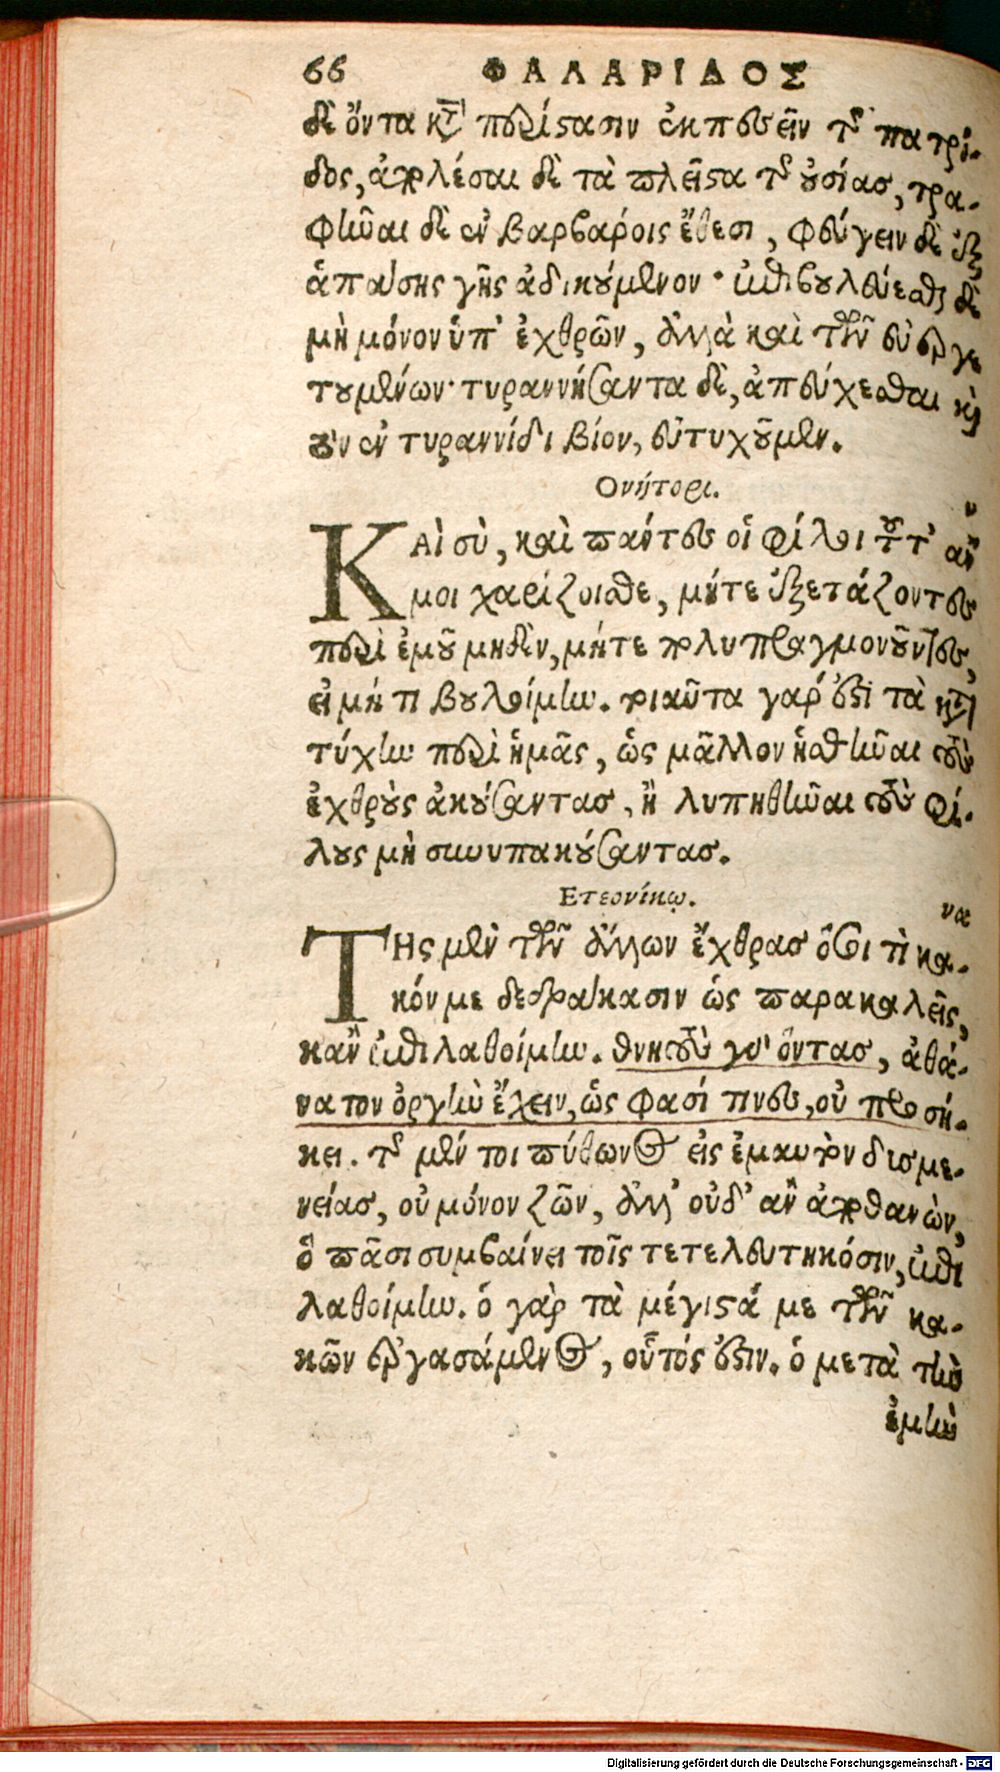 66 ΦΑΛΑΡΙΔΟΣ
δὲ ὄντα κατὰ περίστασιν ἐκπεσεῖν τῆς πατρί-
δος, ἀπολέσαι δὲ τὰ πλεῖστα τῆς οὐσίας, τρα-
φῆναι δὲ ἐν βαρβάροις ἔθεσι, φεύγειν δὲ ἐξ
ἁπάσης γῆς ἀδικούμενον· ἐπιβουλεύεσθαι δὲ
μὴ μόνον ὑπ' ἐχθρῶν, ἀλλὰ καὶ τῶν εὐεργε
τουμένων· τυραννήσαντα δὲ, ἀπεύχεσθαι καὶ
τὸν ἐν τυραννίδι βίον, εὐτυχοῦμεν.
Ονήτορι.
ΚΑὶ σὺ, καὶ πάντες οἱ φίλοι τοῦτ' ἄν
μοι χαρίζοισθε, μήτε ἐξετάζοντες
περὶ ἐμοῦ μηδὲν, μήτε πολυπραγμονοῦντες,
εἰ μή τι βουλοίμην. τοιαῦτα γάρ ἐστι τὰ κατὰ
τύχην περὶ ἡμᾶς, ὡς μᾶλλον ἡσθῆναι τοὺς
ἐχθροὺς ἀκούσαντας, ἢ λυπηθῆναι τοὺς φί-
λους μὴ συνυπακούσαντας.
Ετεονίκῳ.
να
ΤΗς μὲν τῶν ἄλλων ἔχθρας ὅσοι τὶ κα-
κόν με δεδράκασιν ὡς παρακαλεῖς,
κἂν ἐπιλαθοίμην. θνητοὺς γὰρ ὄντας, ἀθά-
νατον ὀργὴν ἔχειν, ὥς φασί τινες, οὐ προσή-
κει. τῆς μέν τοι πύθωνος εἰς ἐμαυτὸν δισμε-
νείας, οὐ μόνον ζῶν, ἀλλ' οὐδ' ἂν ἀποθανὼν,
ὃ πᾶσι συμβαίνει τοῖς τετελευτηκόσιν, ἐπι
λαθοίμην. ὁ γὰρ τὰ μέγιστά με τῶν κα-
κῶν ἐργασάμενος, οὗτός ἐστιν. ὁ μετὰ τὴν
ἐμὴν